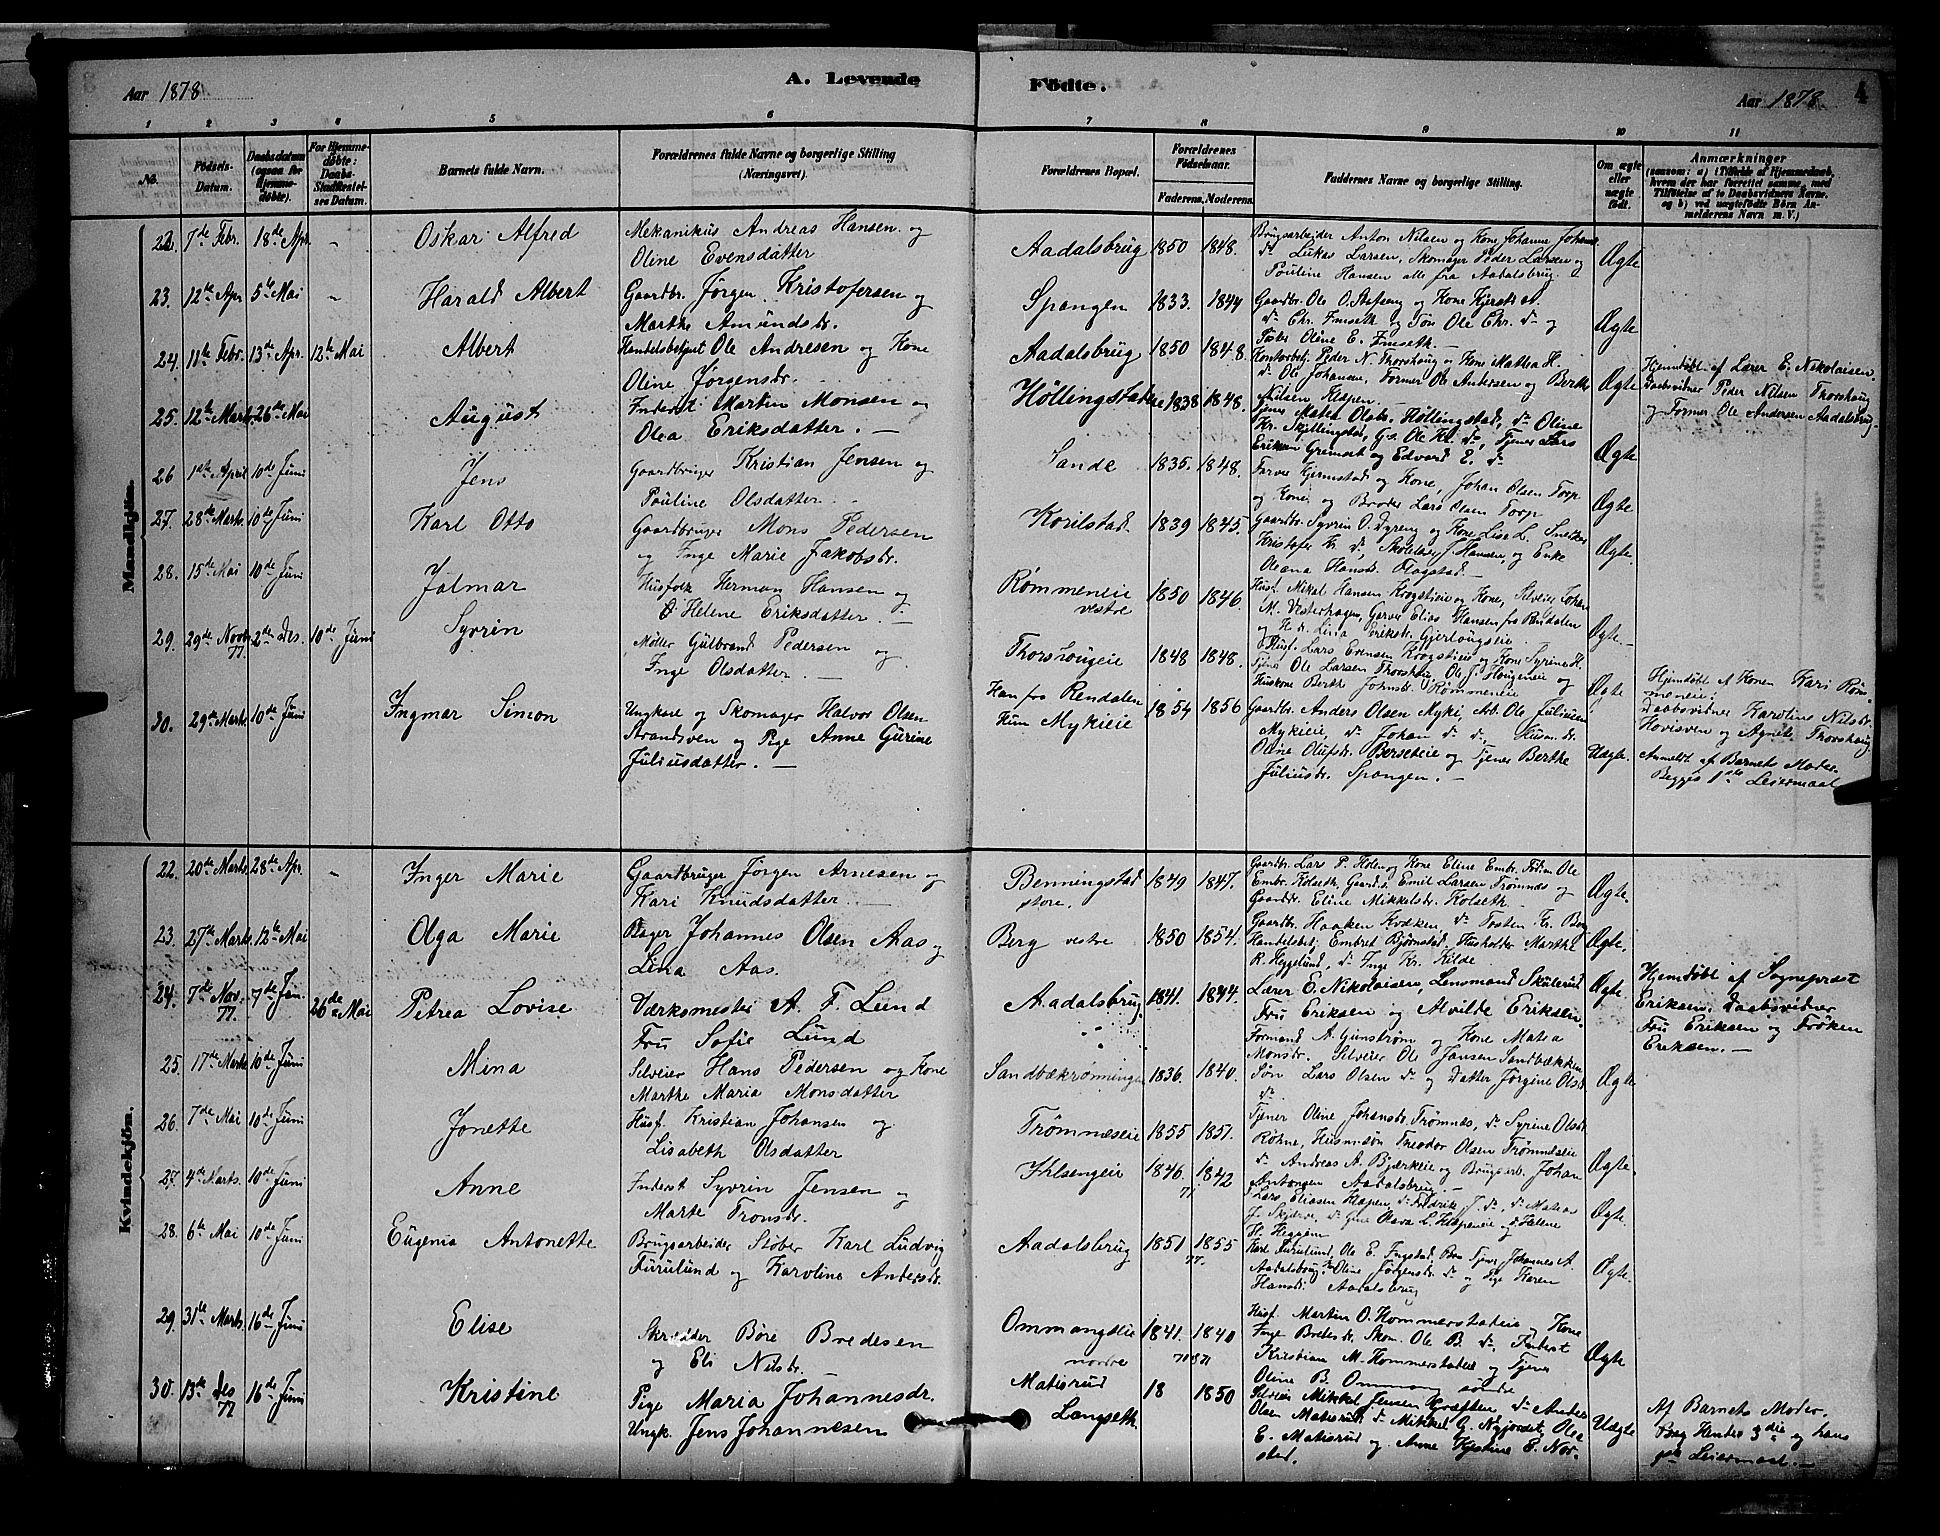 Aar 1878
A. Levende
Födte.
Aar 1878
4
1 2 3 4 5 6 7 8 9 10 11
No.
Födsels-
Datum.
Daabsdatum
(ogsaa for
Hjemme-
døbte).
For Hjemme-
døbte:
Daabs-
Stadfæstel-
ses Datum.
Barnets fulde Navn.
Forældrenes fulde Navne og borgerlige Stilling
(Næringsvei).
Forældrenes Bopæl.
Forældrenes
Fødselsaar.
Faderens. Moderens.
Faddernes Navne og borgerlige Stilling.
Om ægte
eller
uægte
født.
Anmærkninger
(saasom: a) i Tilfælde af Hjemmedaab,
hvem der har forrettet samme, med
Tilføielse af to Daabsvidners Navne,
og b) ved uægtefødte Børn An-
melderens Navn m. V.)
Mandkjön.
22. 7de Febr. 18de Apr. - Oskar Alfred
Mekanikus Andreas Hansen og
Oline Evensdatter
Aadalsbrug 1850 1848.
Brugsarbeider Anton Nilsen og Kone Johanne Johanns
do Lukas Larsen, Skomager Peder Larsen og
Pouline Hansen alle fra Aadalsbrug.
Ægte
23. 12te Apr 5te Mai - Harald Albert
Gaardbr. Jørgen Kristofersen og
Marthe Amundsdr.
Spangen 1833. 1844
Gaardbr. Ole O. og Kone
do Chr. Finseth og Søn Ole Chr. do og
Oline E. Finseth
Ægte
24. 11te Febr. 13de Apr. 12te Mai Albert
Handelsbetjent Ole Andresen og Kone
Oline Jørgensdr.
Aadalsbrug 1850 1848.
Kontorbetj. Peder N. Thorshaug og Kone Mathea H.
do Ole Johansen, Former Ole Andersen og Berthe
Nilsen
Ægte
Hjemdøbt af Lærer E. Nikolaisen.
Daabsvidner Peder Nilsen Thorshaug
og Former Ole Andersen Aadalsbrug
25. 12te Marts 26de Mai August
Inderst Martin Monsen og
Olea Eriksdatter. —
Høllingstadeie 1838 1848.
Tjener Mathea Olsdr. Høllingstad, do Oline
Kr. Skyllingstad, Gs. Ole Kr. do, Tjener Lars
Eriksen Grimset og Edvard E. do
Ægte
26 1ste April 10de Juni Jens
Gaardbruger Kristian Jensen og
Pouline Olsdatter
Sande 1835. 1848.
Farver Gjermstad og Kone, Johan Olsen Torp
og Kone og Broder Lars Olsen Torp
Ægte
27. 28de Marts 10de Juni Karl Otto
Gaardbruger Mons Pedersen
og Inge Marie Jakobsdr.
Korilstad. 1839 1845.
Gaardbr. Syvrin O. Dyreng og Kone Lise L.
Kristofer Kr. do, J. Hansen, og Enke
Oleana Hansdr. Flagstad
Ægte.
28. 15de Mai 10de Juni Jalmar
Husfolk Herman Hansen og
Helene Eriksdatter. —
Rømmeneie
vestre
1850 1846.
Husf. Mikal Hansen Krogstieie og Kone, Selveier Johan
M. Vesterhagen, Garver Elias Hansen fra Rendalen
og H. do. Lina Eriksdr. Gjerlougseie.
Ægte.
29. 29de Novb. 77 2den Des. 10de Juni Syvrin
Møller Gulbrand Pedersen og
Inge Olsdatter. —
Thorshougeie 1848 1848.
Husf. Lars Evensen Krogstieie og Kone Syrine H.
Tjener Ole Larsen Thorshoug, Ole J. Hougeneie og
Huskone Berthe Johnsdr. Rømmeneie
Ægte
Hjemdøbt af Konen Kari Røm-
meneie;
Daabsvidner Karoline Nilsdr.
Hovisven og Agnete Thorshaug.
30. 29de Marts 10de Juni Ingmar Simon
Ungkarl og Skomager Halvor Olsen
Strandsven og Pige Anne Gurine
Juliusdatter. —
Han fra Rendalen
Hun Mykieie
1854 1856
Gaardbr. Anders Olsen Myki, Arb. Ole Juliusen
Mykieie, do Johan do do, Husm.dr.
Oline Olufsdr. Berseteie og Tjener Berthe
Juliusdr. Spangen. —
Uægte.
Anmeldt af Barnets Moder.
Begges 1ste Leiermaal
Kvindekjön.
22. 20de Marts 28de Apr. - Inger Marie
Gaardbruger Jørgen Arnesen og
Kari Knudsdatter. —
Benningstad
store.
1849 1847.
Gaardbr. Lars P. Holen og Kone Eline Embr. Ole
Embr. Kolseth, Gaards. Emil Larsen Trømnæs og
Gaarddr. Eline Mikkelsdr. Kolseth.
Ægte.
23. 27de Marts 12te Mai Olga Marie
Bager Johannes Olsen Aas og
Lina Aas.
Berg vestre 1850 1854.
Gaardbr. Haaken Kvæken, do Tosten Kr. Berg
Handelsbetj. Embret Bjørnstad, Husholder Marthe
R. Heggelund, do Inge Kr. Kilde.
Ægte.
24. 7de Nov. 77. 7de Jan. 26de Mai Petrea Lovise
Værksmester A. F. Lund
Fru Sofie Lund
Aadalsbrug 1841. 1844.
Lærer E. Nikolaisen, Lensmand Skulerud
Fru Eriksen og Alvilde Eriksen.
Ægte
Hjemdøbt af Sognepræst
Eriksen. Daabsvidner
Fru Eriksen og Frøken
Eriksen. —
25. 17de Marts 10de Juni Mina
Selveier Hans Pedersen og Kone
Marthe Maria Monsdatter
Sandbækrønningen 1836. 1840.
Formand A. Gunstrøm og Kone Matea
Monsdr. Selveier Ole Jansen Sandbækken
Søn Lars Olsen do og Datter Jørgine Olsdr
do.
Ægte
26. 7de Mai 10de Juni Jonette
Husf. Kristian Johansen og
Lisabeth Olsdatter
Trømnæseie 1855 1851.
Tjener Oline Johansdr. Trømnæs, do Syrine Olsdr
Røhne, Husm.søn Theodor Olsen Trømnæseie
do Andreas A. Bjerkeie og Brugsarb. Johan
Antonsen Aadalsbrug.
Ægte.
27. 4de Marts. 10de Juni Anne
Inderst Syvrin Jensen og
Marte Tronsdr.
Ihlsengeie 1846. 71 1842
Lars Eliasen do Fredrik J. do, do Mathea
J. do Olava L. og Helene
H. Heggen
Ægte.
28. 6te Mai 10de Juni Eugenia Antonette
Brugsarbeider Støber Karl Ludvig
Furulund og Karoline Andersdr.
Aadalsbrug 1851 77. 1855
Karl Furulund, Ole E. Engstad, Tjener Johannes A.
Aadalsbrug, Oline Jørgensdr. do og Pige Karen
Hansdr. Aadalsbrug
Ægte.
29. 31te Marts. 16de Juni Elise
Skrædder Børe Bredesen
og Eli Nilsdr.
Ommangseie
nordre
1841. 71 1840 71
Husf. Martin O. Hommerstadeie og Kone
Inge Bredesdr. Skom. Ole B. do, Inderst
Kristian M. Hommerstadeie og Tjener
Oline B. Ommang søndre
Ægte
30. 13de Des 77 16de Juni Kristine
Pige Maria Johannesdr.
Ungk. Jens Johannesen
Matisrud
Langseth.
18 1850
Selveier Mikkel Jensen Kræften, do Andreas
Olsen Matisrud do Mikkel G. Nyjordet, Olea
E. Matisrud og Anne Kjestine E. Nor-
stad.
Uægte
Af Barnets Moder.
Beg Hendes 3die og hans
1ste Leiermaal. —